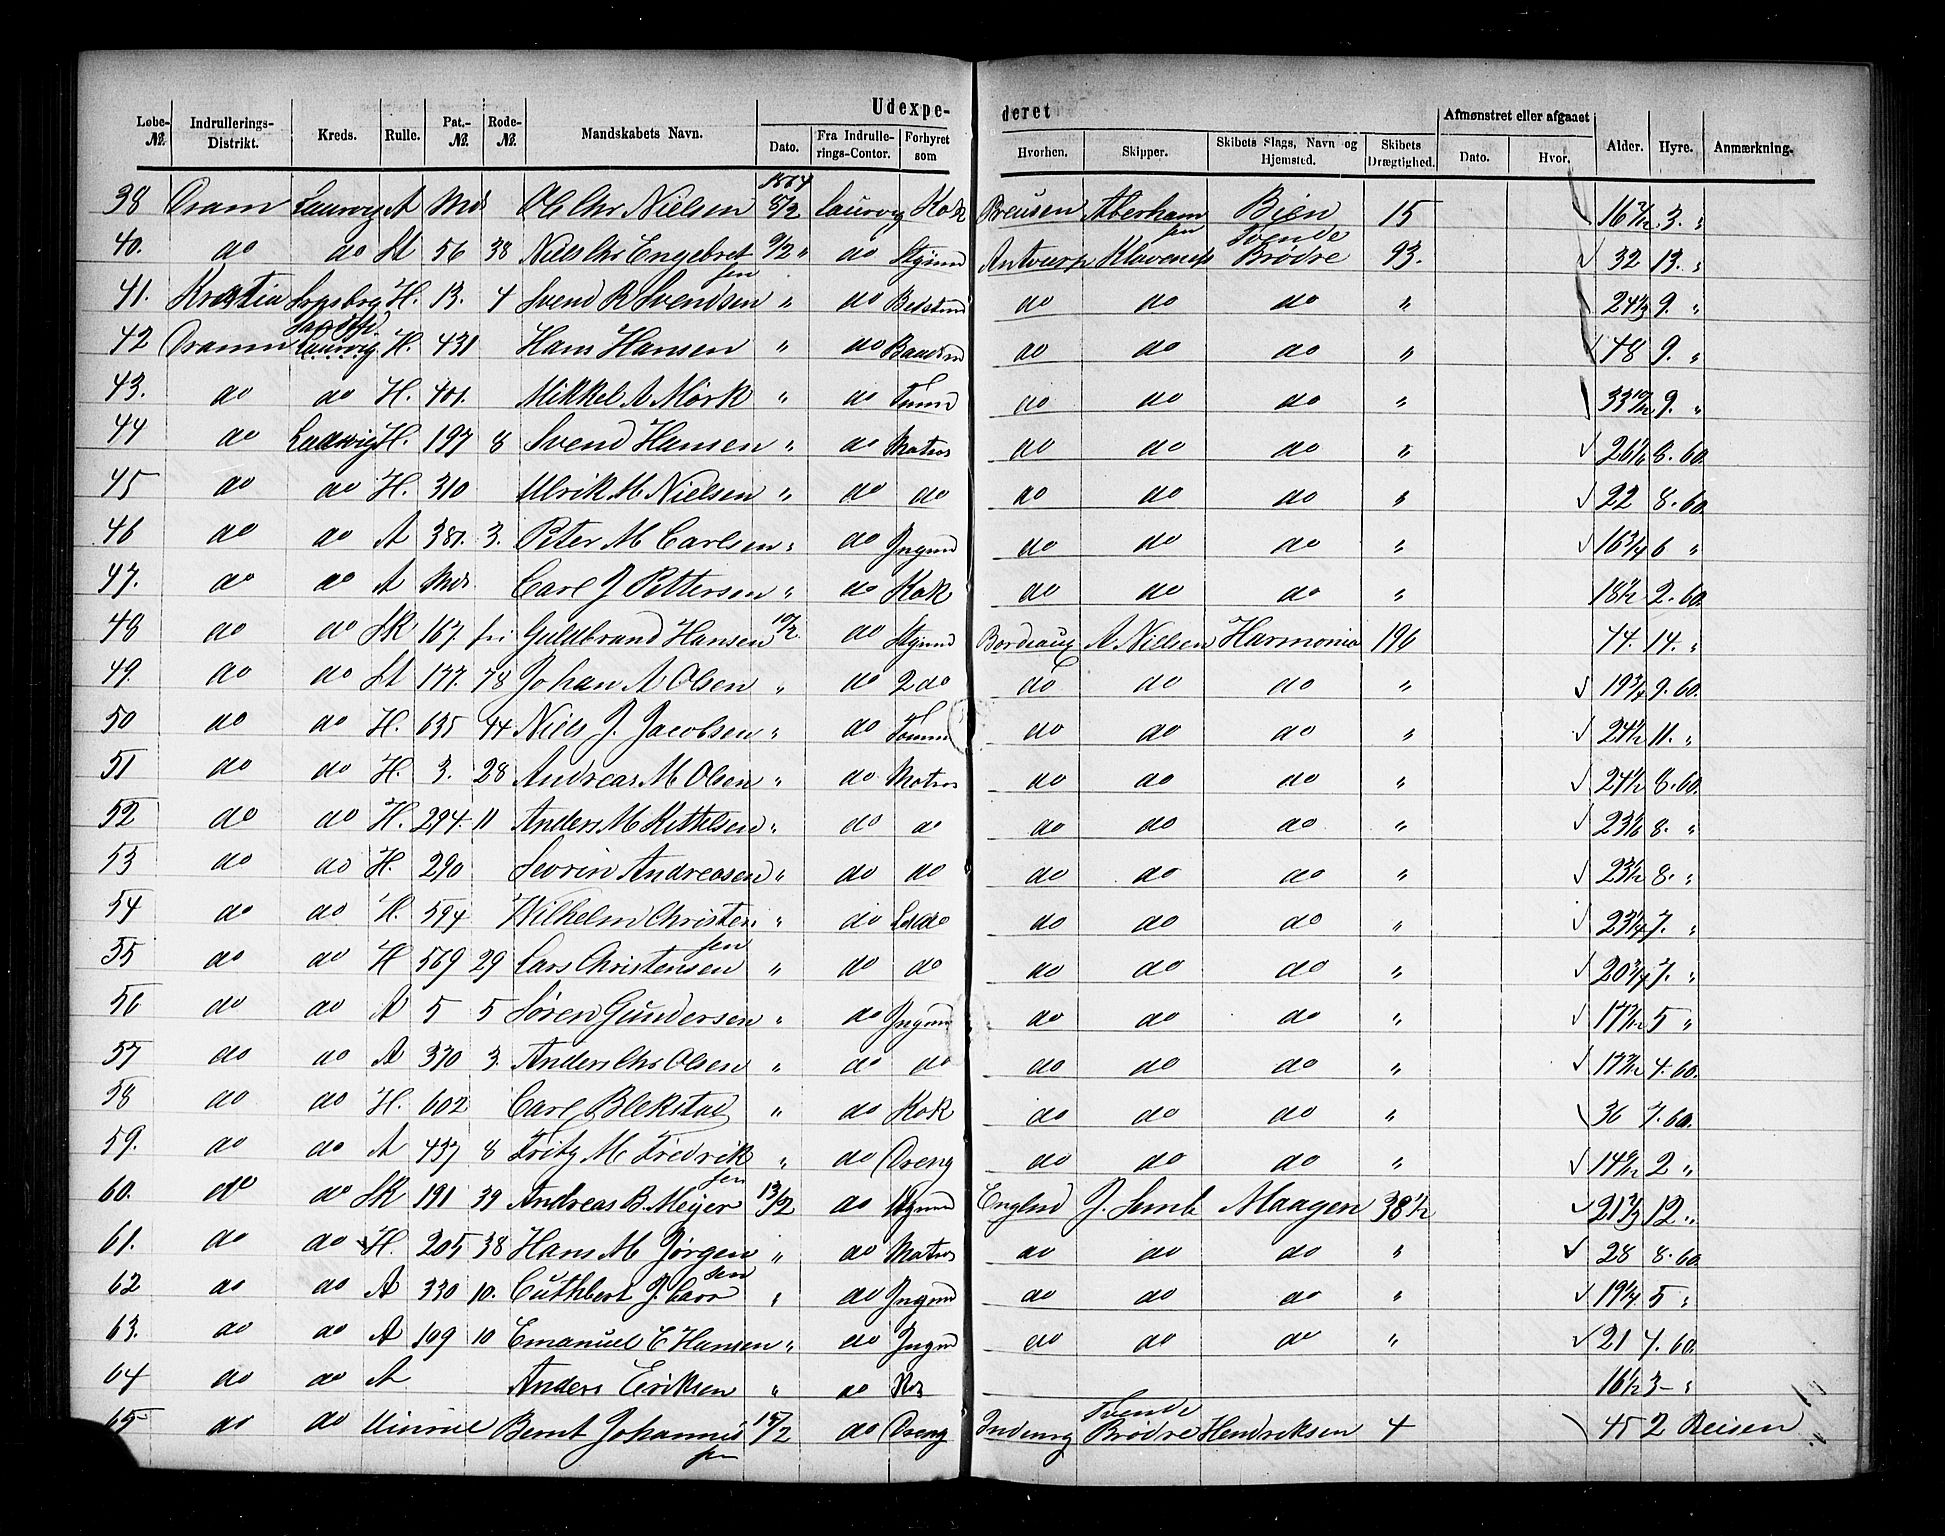 Udexpe- deret
Løbe-№. Indrullerings-Distrikt. Kreds. Rulle. Pat.-№. Rode-№. Mandskabets Navn. Dato. Fra Indrulle-rings-Contor. Forhyret som Hvorhen. Skipper. Skibets Slags, Navn og Hjemsted. Skibets Drægtighed. Afmønstret eller afgaaet Dato. Hvor. Alder. Hyre. Anmærkning.
38 Dram Laurvig A Mdr Ole Chr Nielsen 8/2 Laurvig Kok Aberham sen Bien 15 3. "
40. do do St 56 38 Niels Chr Engebret sen 9/2 " do Stÿrmd Antverp Tvende Brødre 93. 32 13. "
41. H. 13. 4 Svend R Svendsen " do do do do " 9. "
42 Dramn Laurvig H. 431 Hans Hansen " do do do do " 48 9. "
43. do do H. 401. Mikkel A Mørk " do Tmmd do do do " 33 9. "
44 do H. 197 8 Svend Hansen " do Matros do do do " 8. 60
45 do do H. 310 Ulrik M Nielsen " do do do do do " 22 8. 60
46 do do A 381. 3. Peter M Carlsen " do Jngmd do do do " 16 3/4 6 "
47. do do A Mdr. Carl J Pettersen " do Kok do do do " 18 1/2 2. 60
48 do do SK 167. fri Guldbrand Hansen 10/2 do Stÿrmd Bordeaux A Nielsen Harmonia 196 44. 14. "
49. do do St 177. 78 Johan A Olsen " do 2 do do do do " 19 3/4 9. 60.
50 do do H. 635 44 Niels J. Jacobsen " do Tømm do do do " 24 1/2 11. "
51 do do H. 3. 28 Andreas M Olsen " do Matros do do do " 24 1/2 8. 60.
52 do do H. 294. 11 Anders M Kittelsen " do do do do do " 8. "
53 do do H. 290 Sevrin Andreasen " do do do do do " 23 1/2 8. "
54 do do H. 594 Wilhelm Christen sen " do do do do " 23 1/4 7. "
55 do do H 569 29 Lars Christensen " do do do do do " 20 3/4 7. "
56 do do A 5 5 Søren Gundersen " do Jngmd do do do " 5 "
57 do do A 370 3. Anders Chr Olsen " do do do do do " 4. 60.
58 do do H. 602 Carl Blekstad " do Kok do do do " 36 7. 60.
59. do do A 437 8 Fritz M Fredrik sen " do Dreng do do do " 2 "
60. do do SK 191 39 Andreas B. Meÿer 13/2 do Stÿrmd Englnd Maagen 38 1/2 21 2/3 12 "
61. do do H. 205 38 Hans M Jørgen sen " do Matros do do do " 28 8. 60.
62 do do A 330 10. Cuthbert J. Carr " do Jngmd do do do " 19 1/4. 5 "
63. do do A 109 10 Emanuel C Hansen " do Jngmd do do do " 21 4. 60.
64 do do A Anders Eriksen " do Kok 16 1/2 3 - "
65 do do Bernt Johannes sen 15/2 do Dreng Tvende Brødre Hendriksen 4 45 2 Reisen